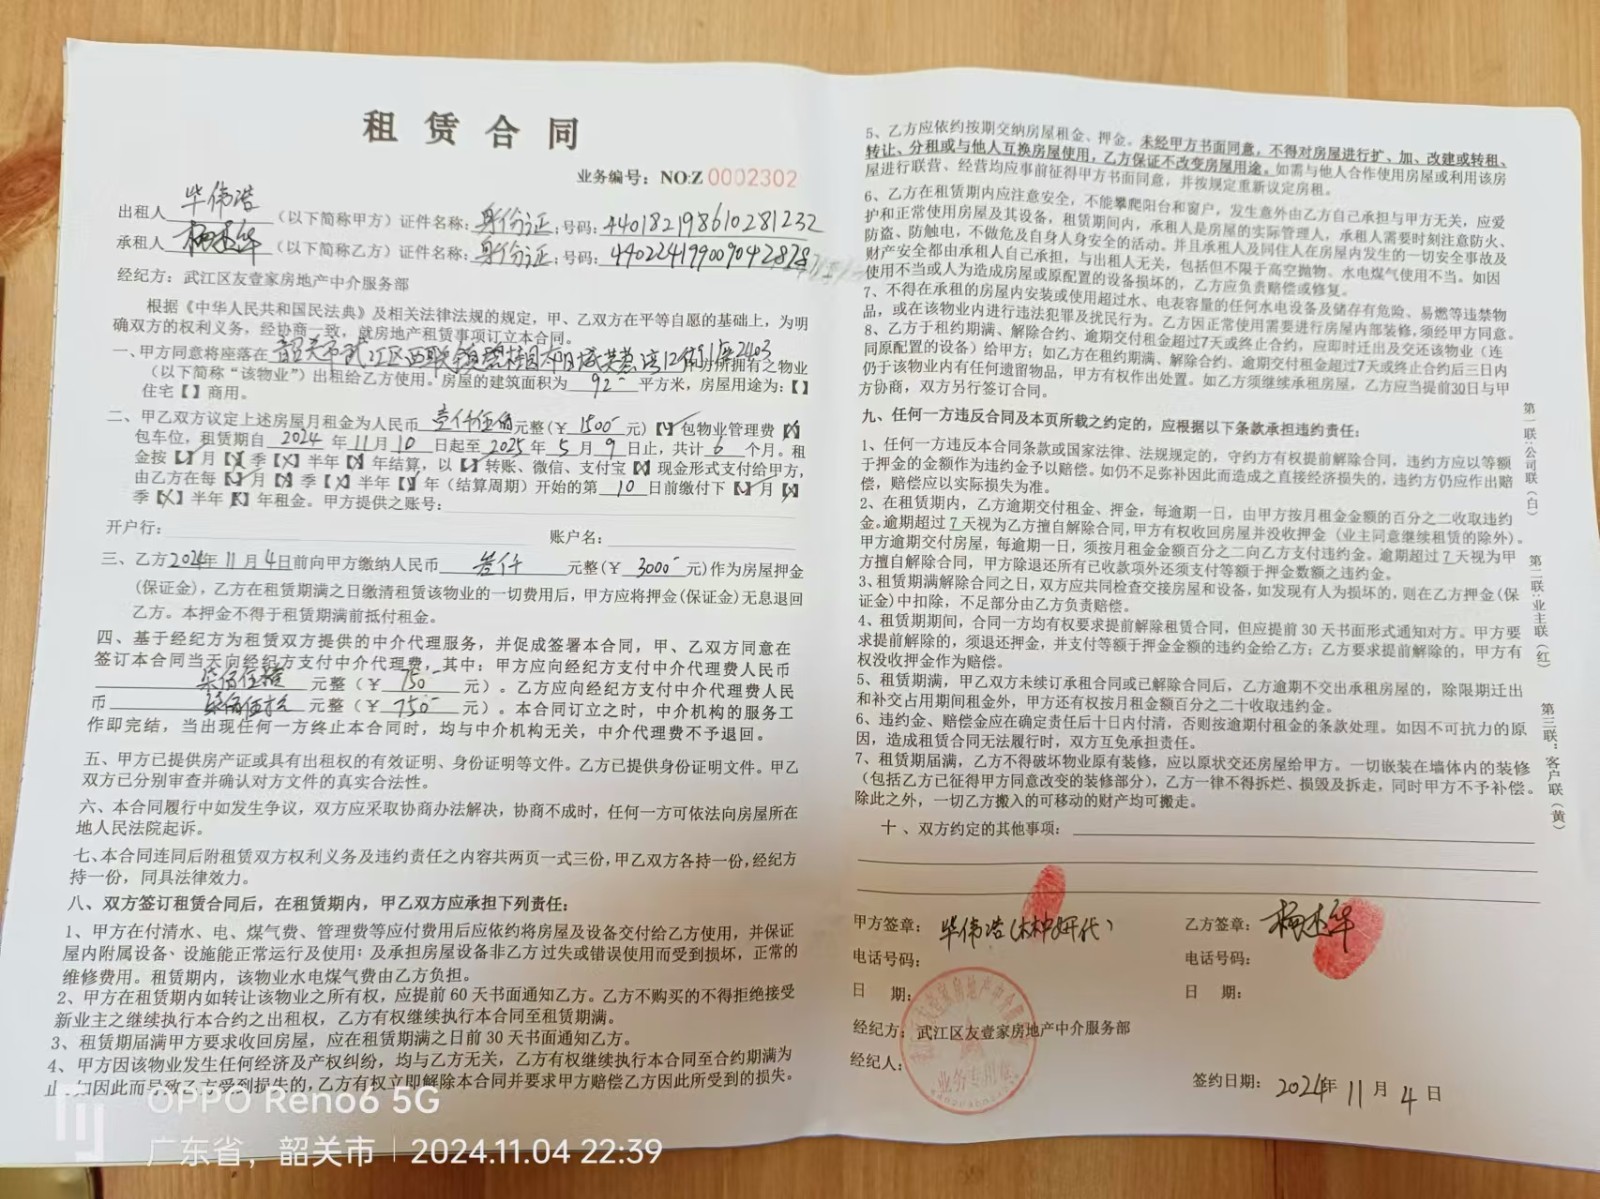 租赁合同
业务编号：NO:Z 0002302
出租人 毕伟浩 （以下简称甲方）证件名称：身份证；号码：440182198610281232
承租人 （以下简称乙方）证件名称：身份证；号码：
经纪方：武江区友壹家房地产中介服务部
根据《中华人民共和国民法典》及相关法律法规的规定，甲、乙双方在平等自愿的基础上，为明
确双方的权利义务，经协商一致，就房地产租赁事项订立本合同。
一、甲方同意将座落在 韶关市武江区西联镇碧桂园太阳城芙蓉湾12街11座2403 所拥有之物业
（以下简称“该物业”）出租给乙方使用。房屋的建筑面积为 92 平方米，房屋用途为：【】
住宅【】商用。
二、甲乙双方议定上述房屋月租金为人民币 壹仟伍佰 元整（￥ 1500 元）【√】包物业管理费【×】
包车位，租赁期自 2024 年 11 月 10 日起至 2025 年 5 月 9 日止，共计 6 个月。租
金按【√】月【×】季【×】半年【×】年结算，以【√】转账、微信、支付宝【×】现金形式支付给甲方，
由乙方在每【√】月【×】季【×】半年【×】年（结算周期）开始的第 10 日前缴付下【√】月【×】
季【×】半年【×】年租金。甲方提供之账号：
开户行： 账户名：
三、乙方2024年11月4日前向甲方缴纳人民币 叁仟 元整（￥ 3000 元）作为房屋押金
（保证金），乙方在租赁期满之日缴清租赁该物业的一切费用后，甲方应将押金（保证金）无息退回
乙方。本押金不得于租赁期满前抵付租金。
四、基于经纪方为租赁双方提供的中介代理服务，并促成签署本合同，甲、乙双方同意在
签订本合同当天向经纪方支付中介代理费，其中：甲方应向经纪方支付中介代理费人民币
柒佰伍拾 元整（￥ 750 元）。乙方应向经纪方支付中介代理费人民
币 柒佰伍拾 元整（￥ 750 元）。本合同订立之时，中介机构的服务工
作即完结，当出现任何一方终止本合同时，均与中介机构无关，中介代理费不予退回。
五、甲方已提供房产证或具有出租权的有效证明、身份证明等文件。乙方已提供身份证明文件。甲乙
双方已分别审查并确认对方文件的真实合法性。
六、本合同履行中如发生争议，双方应采取协商办法解决，协商不成时，任何一方可依法向房屋所在
地人民法院起诉。
七、本合同连同后附租赁双方权利义务及违约责任之内容共两页一式三份，甲乙双方各持一份，经纪方
持一份，同具法律效力。
八、双方签订租赁合同后，在租赁期内，甲乙双方应承担下列责任：
1、甲方在付清水、电、煤气费、管理费等应付费用后应依约将房屋及设备交付给乙方使用，并保证
屋内附属设备、设施能正常运行及使用；及承担房屋设备非乙方过失或错误使用而受到损坏，正常的
维修费用。租赁期内，该物业水电煤气费由乙方负担。
2、甲方在租赁期内如转让该物业之所有权，应提前60天书面通知乙方。乙方不购买的不得拒绝接受
新业主之继续执行本合约之出租权，乙方有权继续执行本合同至租赁期满。
3、租赁期届满甲方要求收回房屋，应在租赁期满之日前30天书面通知乙方。
4、甲方因该物业发生任何经济及产权纠纷，均与乙方无关，乙方有权继续执行本合同至合约期满为
止，如因此而导致乙方受到损失的，乙方有权立即解除本合同并要求甲方赔偿乙方因此所受到的损失。
5、乙方应依约按期交纳房屋租金、押金。未经甲方书面同意，不得对房屋进行扩、加、改建或转租、
转让、分租或与他人互换房屋使用，乙方保证不改变房屋用途。如需与他人合作使用房屋或利用该房
屋进行联营、经营均应事前征得甲方书面同意，并按规定重新议定房租。
6、乙方在租赁期内应注意安全，不能攀爬阳台和窗户，发生意外由乙方自己承担与甲方无关，应爱
护和正常使用房屋及其设备，租赁期间内，承租人是房屋的实际管理人，承租人需要时刻注意防火、
防盗、防触电，不做危及自身人身安全的活动。并且承租人及同住人在房屋内发生的一切安全事故及
财产安全都由承租人自己承担，与出租人无关，包括但不限于高空抛物、水电煤气使用不当。如因
使用不当或人为造成房屋或原配置的设备损坏的，乙方应负责赔偿或修复。
7、不得在承租的房屋内安装或使用超过水、电表容量的任何水电设备及储存有危险、易燃等违禁物
品，或在该物业内进行违法犯罪及扰民行为。乙方因正常使用需要进行房屋内部装修，须经甲方同意。
8、乙方于租约期满、解除合约、逾期交付租金超过7天或终止合约，应即时迁出及交还该物业（连
同原配置的设备）给甲方；如乙方在租约期满、解除合约、逾期交付租金超过7天或终止合约后三日内
仍于该物业内有任何遗留物品，甲方有权作出处置。如乙方须继续承租房屋，乙方应当提前30日与甲
方协商，双方另行签订合同。
九、任何一方违反合同及本页所载之约定的，应根据以下条款承担违约责任：
1、任何一方违反本合同条款或国家法律、法规规定的，守约方有权提前解除合同，违约方应以等额
于押金的金额作为违约金予以赔偿。如仍不足弥补因此而造成之直接经济损失的，违约方仍应作出赔
偿，赔偿应以实际损失为准。
2、在租赁期内，乙方逾期交付租金、押金，每逾期一日，由甲方按月租金金额的百分之二收取违约
金。逾期超过7天视为乙方擅自解除合同，甲方有权收回房屋并没收押金（业主同意继续租赁的除外）。
甲方逾期交付房屋，每逾期一日，须按月租金金额百分之二向乙方支付违约金。逾期超过7天视为甲
方擅自解除合同，甲方除退还所有已收款项外还须支付等额于押金数额之违约金。
3、租赁期满解除合同之日，双方应共同检查交接房屋和设备，如发现有人为损坏的，则在乙方押金（保
证金）中扣除，不足部分由乙方负责赔偿。
4、租赁期期间，合同一方均有权要求提前解除租赁合同，但应提前30天书面形式通知对方。甲方要
求提前解除的，须退还押金，并支付等额于押金金额的违约金给乙方；乙方要求提前解除的，甲方有
权没收押金作为赔偿。
5、租赁期满，甲乙双方未续订承租合同或已解除合同后，乙方逾期不交出承租房屋的，除限期迁出
和补交占用期间租金外，甲方还有权按月租金额百分之二十收取违约金。
6、违约金、赔偿金应在确定责任后十日内付清，否则按逾期付租金的条款处理。如因不可抗力的原
因，造成租赁合同无法履行时，双方互免承担责任。
7、租赁期届满，乙方不得破坏物业原有装修，应以原状交还房屋给甲方。一切嵌装在墙体内的装修
（包括乙方已征得甲方同意改变的装修部分），乙方一律不得拆烂、损毁及拆走，同时甲方不予补偿。
除此之外，一切乙方搬入的可移动的财产均可搬走。
十、双方约定的其他事项：
甲方签章：毕伟浩 乙方签章：
电话号码： 电话号码：
日 期： 日 期：
经纪方：武江区友壹家房地产中介服务部
经纪人：
业务专用章
签约日期：2024年 11 月 4 日
第一联：公司联（白）
第二联：业主联（红）
第三联：客户联（黄）
OPPO Reno6 5G
广东省，韶关市 | 2024.11.04 22:39